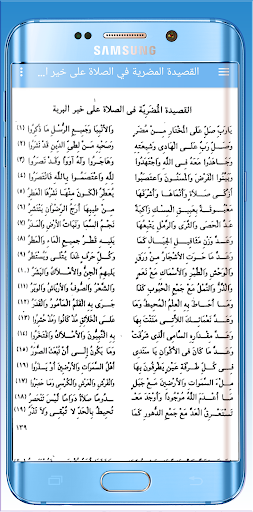 SAMSUNG
القصيدة المضرية في الصلاة على خير ا...
القصيدة المُضَرِيَّة في الصلاة على خير البرية
يَا رَبِّ صَلِّ عَلَى الْمُخْتَارِ مِنْ مُضَرٍ وَالْأَنْبِيَا وَجَمِيعِ الرُّسْلِ مَا ذُكِرُوا (١)
وَصَلِّ رَبِّ عَلَى الْهَادِي وَشِيعَتِهِ وَصَحْبِهِ مَنْ لِطَيِّ الدِّينِ قَدْ نَشَرُوا (٢)
وَجَاهَدُوا مَعَهُ فِي اللهِ وَاجْتَهَدُوا وَهَاجَرُوا وَلَهُ آوَوْا وَقَدْ نَصَرُوا (٣)
وَبَيَّنُوا الْفَرْضَ وَالْمَسْنُونَ وَاعْتَصَبُوا لِلَّهِ وَاعْتَصَمُوا بِاللهِ فَانْتَصَرُوا (٤)
أَزْكَى صَلَاةٍ وَأَنْمَاهَا وَأَشْرَفَهَا يُعَطِّرُ الْكَوْنَ مِنْهَا نَشْرُهَا الْعَطِرُ (٥)
مَعْبُوقَةً بِعَبِيقِ الْمِسْكِ زَاكِيَةً مِنْ طِيبِهَا أَرَجُ الرِّضْوَانِ يَنْتَشِرُ (٦)
عَدَّ الْحَصَى وَالثَّرَى وَالرَّمْلِ يَتْبَعُهَا نَجْمُ السَّمَا وَنَبَاتُ الْأَرْضِ وَالْمَدَرُ (٧)
وَعَدَّ وَزْنِ مَثَاقِيلِ الْجِبَالِ كَمَا يَلِيهِ قَطْرُ جَمِيعِ الْمَاءِ وَالْمَطَرُ (٨)
وَعَدَّ مَا حَوَتِ الْأَشْجَارُ مِنْ وَرَقٍ وَكُلِّ حَرْفٍ غَدَا يُتْلَى وَيُسْتَطَرُ (٩)
وَالْوَحْشِ وَالطَّيْرِ وَالْأَسْمَاكِ مَعْ نَعَمٍ يَلِيهِمُ الْجِنُّ وَالْأَمْلَاكُ وَالْبَشَرُ (١٠)
وَالذَّرُّ وَالنَّمْلُ مَعْ جَمْعِ الْحُبُوبِ كَذَا وَالشَّعْرُ وَالصُّوفُ وَالْأَرْيَاشُ وَالْوَبَرُ (١١)
وَمَا أَحَاطَ بِهِ الْعِلْمُ الْمُحِيطُ وَمَا جَرَى بِهِ الْقَلَمُ الْمَأْمُورُ وَالْقَدَرُ (١٢)
وَعَدَّ نَعْمَائِكَ اللَّاتِي مَنَنْتَ بِهَا عَلَى الْخَلَائِقِ مُذْ كَانُوا وَمُذْ حُشِرُوا (١٣)
وَعَدَّ مِقْدَارِهِ السَّامِي الَّذِي شَرُفَتْ بِهِ النَّبِيُّونَ وَالْأَمْلَاكُ وَافْتَخَرُوا (١٤)
وَعَدَّ مَا كَانَ فِي الْأَكْوَانِ يَا سَنَدِي وَمَا يَكُونُ إِلَى أَنْ تُبْعَثَ الصُّوَرُ (١٥)
فِي كُلِّ طَرْفَةِ عَيْنٍ يَطْرِفُونَ بِهَا أَهْلُ السَّمَوَاتِ وَالْأَرْضِينَ أَوْ يَذَرُوا (١٦)
مِلْءَ السَّمَوَاتِ وَالْأَرْضِينَ مَعْ جَبَلٍ وَالْفَرْشِ وَالْعَرْشِ وَالْكُرْسِي وَمَا حَصَرُوا (١٧)
مَا أَعْدَمَ اللهُ مَوْجُودًا وَأَوْجَدَ مَعْـ دُومًا صَلَاةً دَوَامًا لَيْسَ تَنْحَصِرُ (١٨)
تَسْتَغْرِقُ الْعَدَّ مَعْ جَمْعِ الدُّهُورِ كَمَا تُحِيطُ بِالْحَدِّ لَا تُبْقِي وَلَا تَذَرُ (١٩)
١٣٩